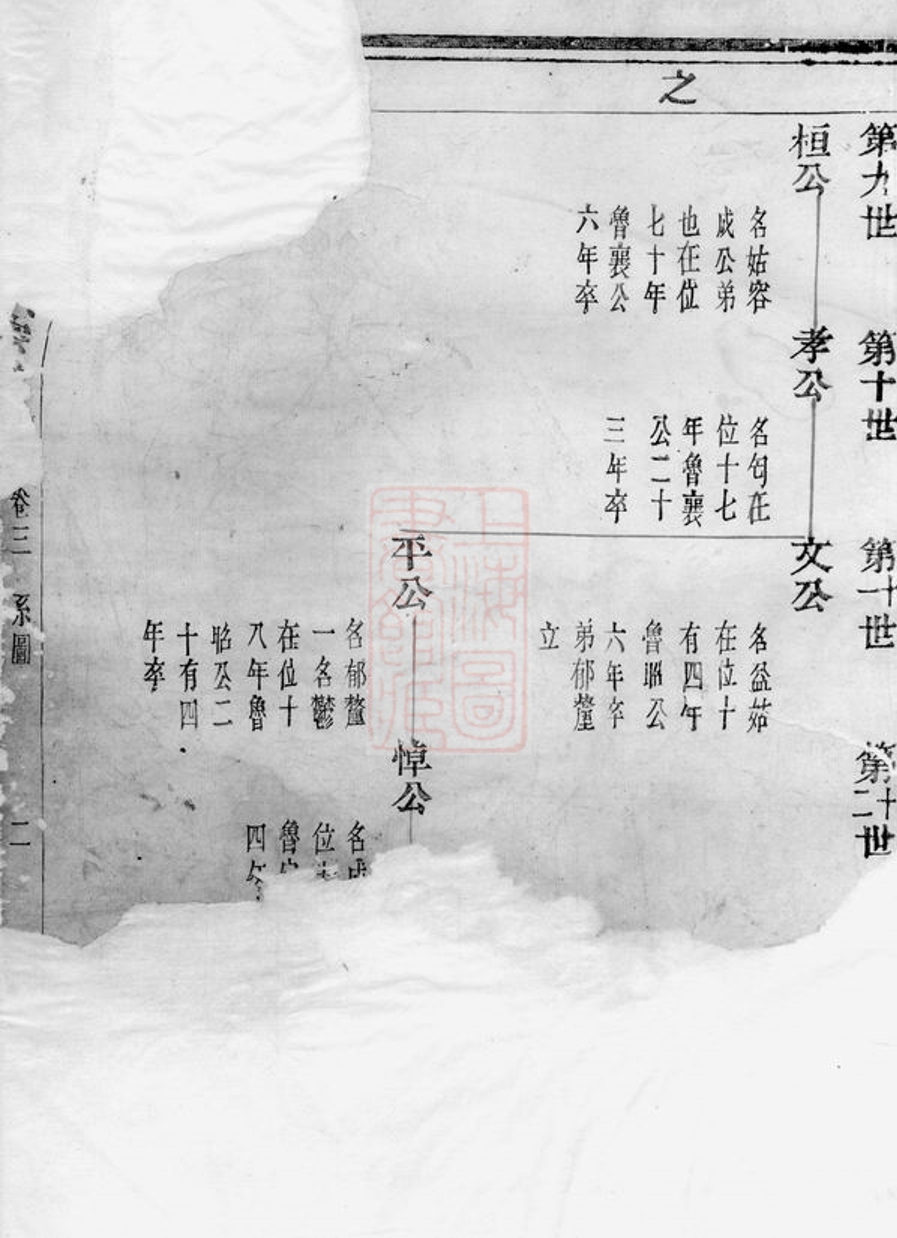 之
第九世
桓公
名姑容
成公弟
也在位
七十年
魯襄公
六年卒
第十世
孝公
名匄在
位十七
年魯襄
公二十
三年卒
第十一世
文公
名益姑
在位十
有四年
魯昭公
六年卒
弟郁釐
立
平公
名郁釐
一名鬱
在位十
八年魯
昭公二
十有四
年卒
第十二世
悼公
名成
位
魯
四年
卷三
系圖
二
上海圖書館藏